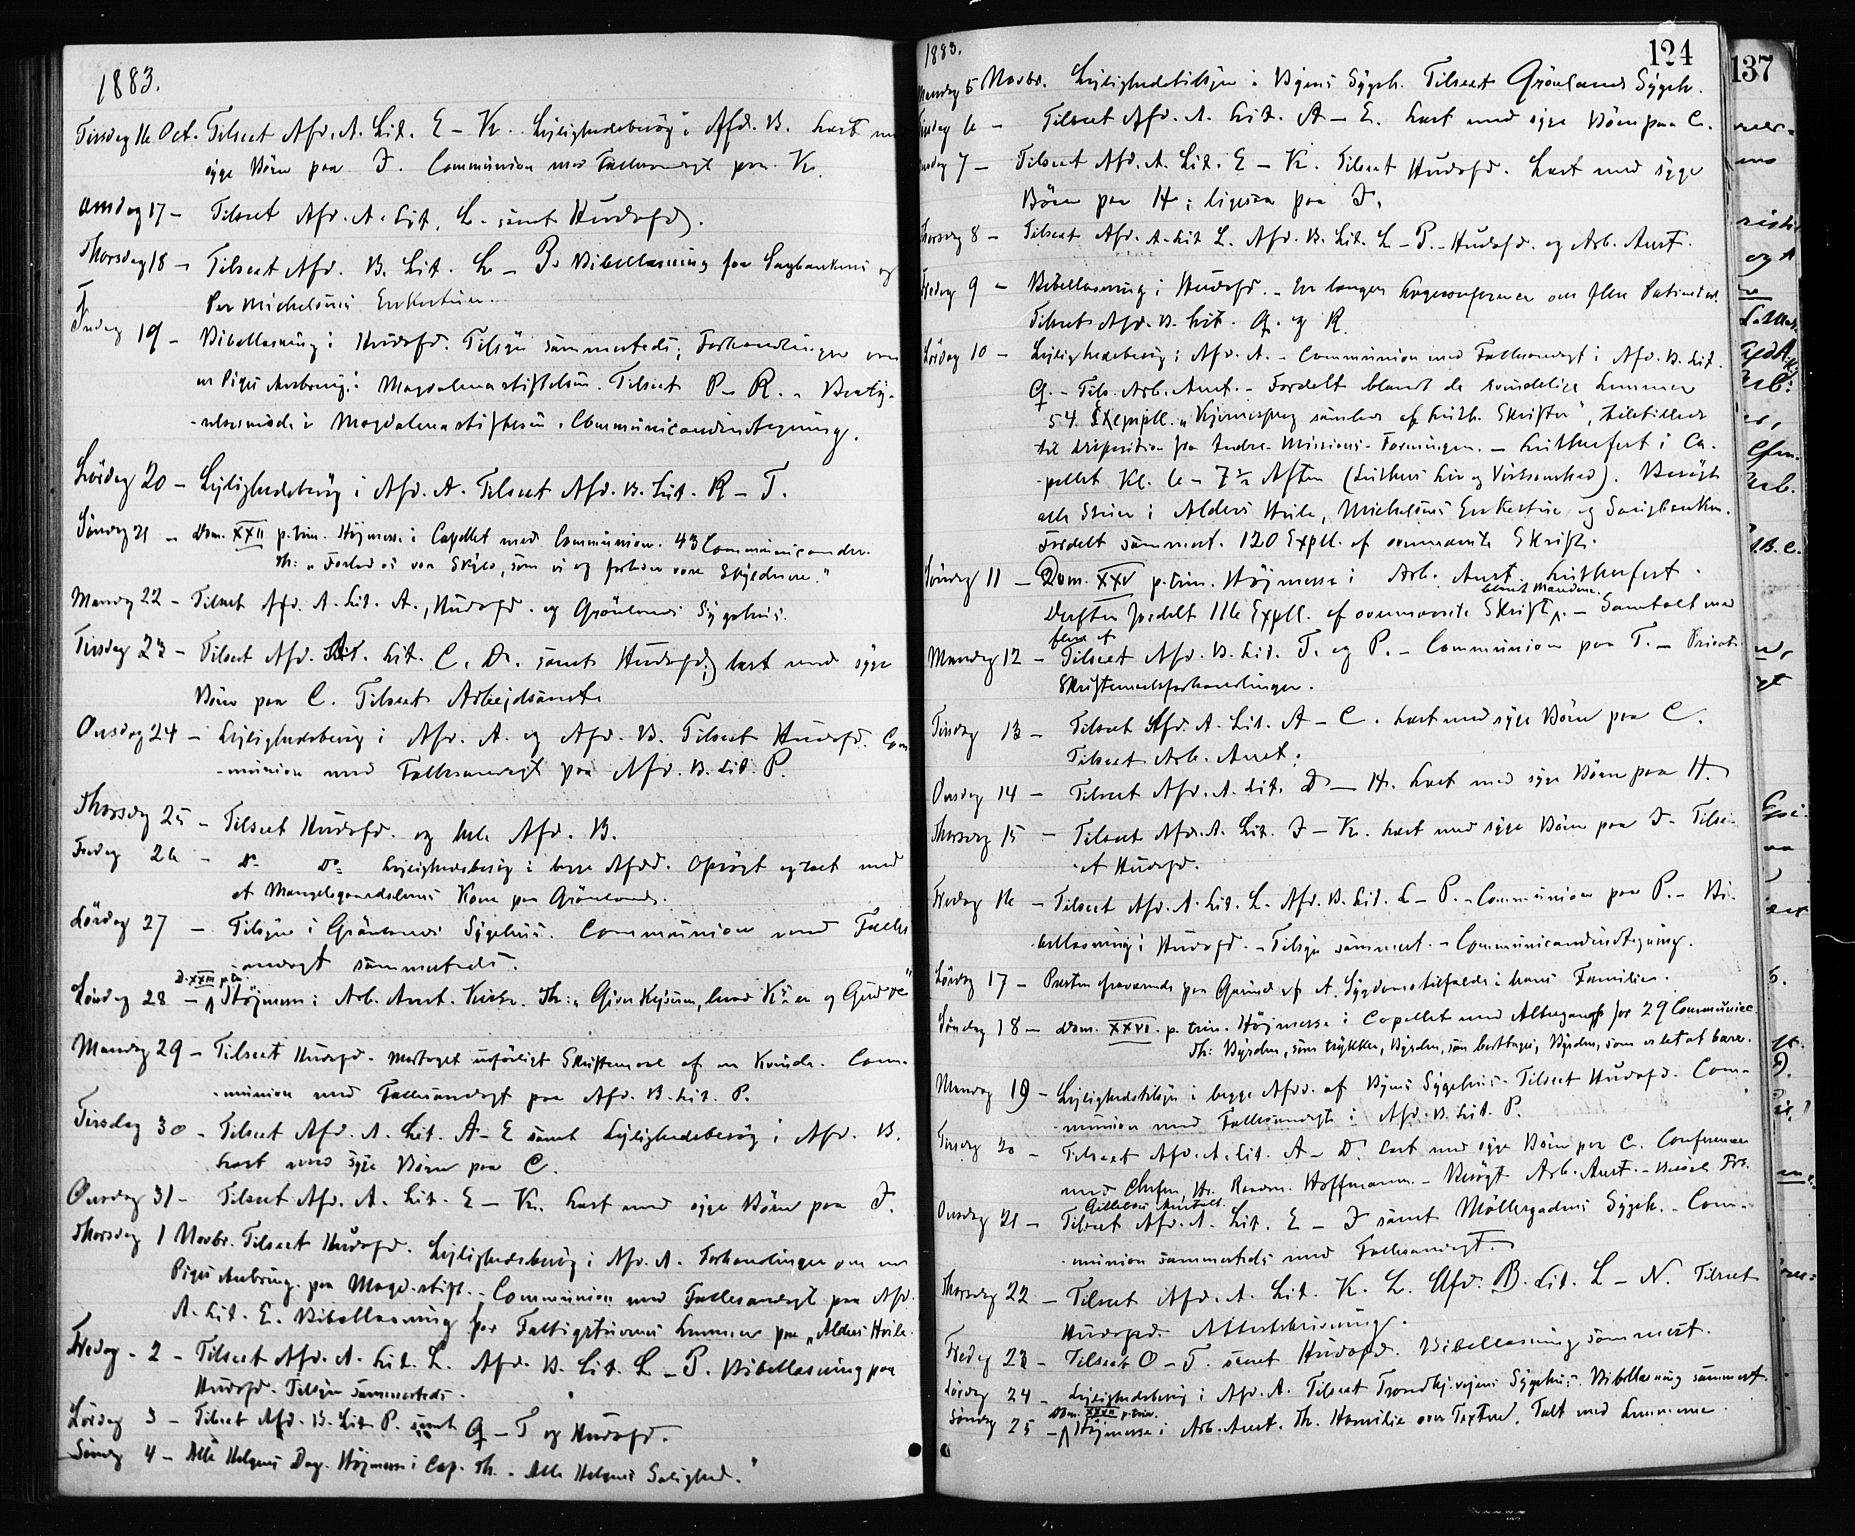 1883.
Tirsdag 16 Oct. Tilseet Afd. A. Lit. E – K. Lejlighedsbesög i Afd. B. Læst med
syge Börn paa I. Communion med Fællesandagt paa K.
Onsdag 17 – Tilseet Afd. A. Lit. L. samt Hudafd.
Thorsdag 18 – Tilseet Afd. B. Lit. L – P. Bibellæsning for Saugbankens og
Per Michelsens Enkestue.
Fredag 19 – Bibellæsning i Hudafd. Tilsyn sammesteds; Forhandlinger om
en Piges Anbring. i Magdalenastiftelsen. Tilseet P – R. – Besty-
-relsesmöde i Magdalenastiftelsen. Communicandindtegning.
Lördag 20 – Lejlighedsbesög i Afd. A. Tilseet Afd. B. Lit. R – T.
Söndag 21 – Dom. XXII p. trin. Höjmesse i Capellet med Communion. 43 Communicander.
Th: „Forlad os vor Skyld, som vi og forlade vore Skyldnere."
Mandag 22 – Tilseet Afd. A. Lit. A., Hudafd. og Grönlands Sygehus.
Tirsdag 23 – Tilseet Afd. A. Lit. C. D. samt Hudafd; læst med syge
Börn paa C. Tilseet Arbejdsanst.
Onsdag 24 – Lejlighedsbesög i Afd. A. og Afd. B. Tilseet Hudafd. Com
-munion med Fællesandagt paa Afd. B. Lit. P.
Thorsdag 25 – Tilseet Hudafd. og hele Afd. B.
Fredag 26 – Do Do Lejlighedsbesög i begge Afdd. Opsögt og talt med
et Mangelsgaardslems Kone paa Grönland.
Lördag 27 – Tilsyn i Grönlands Sygehus. Communion med Fælles
andagt sammesteds.
D. XXIII p. tr.
Söndag 28 – Höjmesse i Arb. Anst. Kirke. Th: „Giver Kejseren, hvad K's er og Gud &c"
Mandag 29 – Tilseet Hudafd. Modtaget udförligt Skriftemaal af en Kvinde. Com-
-munion med Fællesandagt paa Afd. B. Lit. P.
Tirsdag 30 – Tilseet Afd. A. Lit. A – E samt Lejlighedsbesög i Afd. B.
Læst med syge Börn paa C.
Onsdag 31 – Tilseet Afd. A. Lit. E – K. Læst med syge Börn paa I.
Thorsdag 1 Novbr. Tilseet Hudafd. Lejlighedsbesög i Afd. A. Forhandlinger om en
Piges Anbring. paa Magd. stift. – Communion med Fællesandagt paa Afd.
A. Lit. E. Bibellæsning for Fattigstuernes Lemmer paa „Alders Hvile.
Fredag – 2 – Tilseet Afd. A. Lit. L. Afd. B. Lit. L – P. Bibellæsning paa
Hudafd. Tilsyn sammesteds.
Lördag 3 – Tilseet Afd. B. Lit. P. samt Q – T og Hudafd.
Söndag 4 – Alle Helgens Dag. Höjmesse i Cap. Th. – Alle Helgens Salighed."
1883.
124
Mandag 5 Novbr. Lejlighedstilsyn i Byens Sygeh. Tilseet Grönlands Sygeh.
Tirsdag 6 – Tilseet Afd. A. Lit. A – E. Læst med syge Börn paa C.
Onsdag 7 – Tilseet Afd. A. Lit. E – K. Tilseet Hudafd. Læst med syge
Börn paa H; ligesaa paa I.
Thorsdag 8 – Tilseet Afd. A. Lit L. Afd. B. Lit. L – P. – Hudafd. og Arb. Anst.
Fredag 9 – Bibellæsning i Hudafd. – En længere Lægeconference om flere Patienter.
Tilseet Afd. B. Lit. Q. og R.
Lördag 10 – Lejlighedsbesög i Afd. A. – Communion med Fællesandagt i Afd. B. Lit.
Q. – Tils. Arb. Anst. – Fordelt blandt de kvindelige Lemmer
54 Exempl. „Kjernesprog samlede af Luth. Skrifter", stillede
til Disposition fra Indre-Missions-Foreningen. – Lutherfest i Ca-
-pellet Kl. 6 – 7½ Aften (Luthers Liv og Virksomhed). Besögt
alle Stuer i Alders Hvile, Michelsens Enkestue og Saugbanken.
Fordelt sammest. 120 Expll. af ovennævnte Skrift.
Söndag 11 – Dom. XXV p. trin. Höjmesse i Arb. Anst. Lutherfest.
blandt Mændene.
Derefter fordelt 116 Expll. af ovennævnte Skrift. – Samtalt med
flere af
Mandag 12 – Tilseet Afd. B. Lit. T. og P. – Communion paa T. – Privat
Skriftemaalsforhandlinger.
Tirsdag 13 – Tilseet Afd. A. Lit. A – C. Læst med syge Börn paa C.
Tilseet Arb. Anst.
Onsdag 14 – Tilseet Afd. A. Lit. D – H. Læst med syge Börn paa H.
Thorsdag 15 – Tilseet Afd. A. Lit. I – K. Læst med syge Börn paa I. Tilse-
-et Hudafd.
Fredag 16 – Tilseet Afd. A. Lit. L. Afd. B. Lit. L – P. – Communion paa P. – Bi-
bellæsning i Hudafd. – Tilsyn sammest. – Communicandindtegning.
Lördag 17 – Præsten fraværende paa Grund af et Sygdomstilfælde i hans Familie.
Söndag 18 – Dom. XXVI. p. trin. Höjmesse i Capellet med Altergang for 29 Communice
Th: Byrden, som trykker, Byrden, som borttages, Byrden, som er let at bære.
Mandag 19 – Lejlighedstilsyn i begge Afdd. af Byens Sygehus. Tilseet Hudafd. Com-
-munion med Fællesandagt i Afd. B. Lit. P.
Tirsdag 20 – Tilseet Afd. A. Lit. A – D. Læst med syge Börn paa C. Conferencer
med Chefen, Hr. Hoffmann. – Besögt Arb. Anst. – Besögt Frk.
Anstalt.
Onsdag 21 – Tilseet Afd. A. Lit. E – I samt Möllergadens Sygeh. – Com-
-munion sammesteds med Fællesandagt.
Thorsdag 22 – Tilseet Afd. A. Lit. K. L. Afd. B. Lit. L – N. Tilseet
Hudafd. Attestskrivning.
Fredag 23 – Tilseet O – T. samt Hudafd. Bibellæsning sammest.
Lördag 24 – Lejlighedsbesög i Afd. A. Tilseet Trondhj.vejens Sygehus. Bibellæsning sammest.
Dom. XXVII p. trin.
Söndag 25 – Höjmesse i Arb. Anst. Th. Homilie over Texten. Talt med Lemmerne.
137